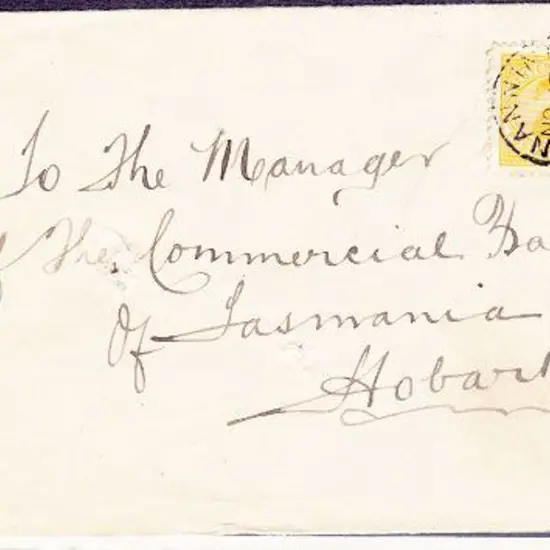 To The Manager
of The Commercial Ba
Of Tasmania
Hobart
NANNIN